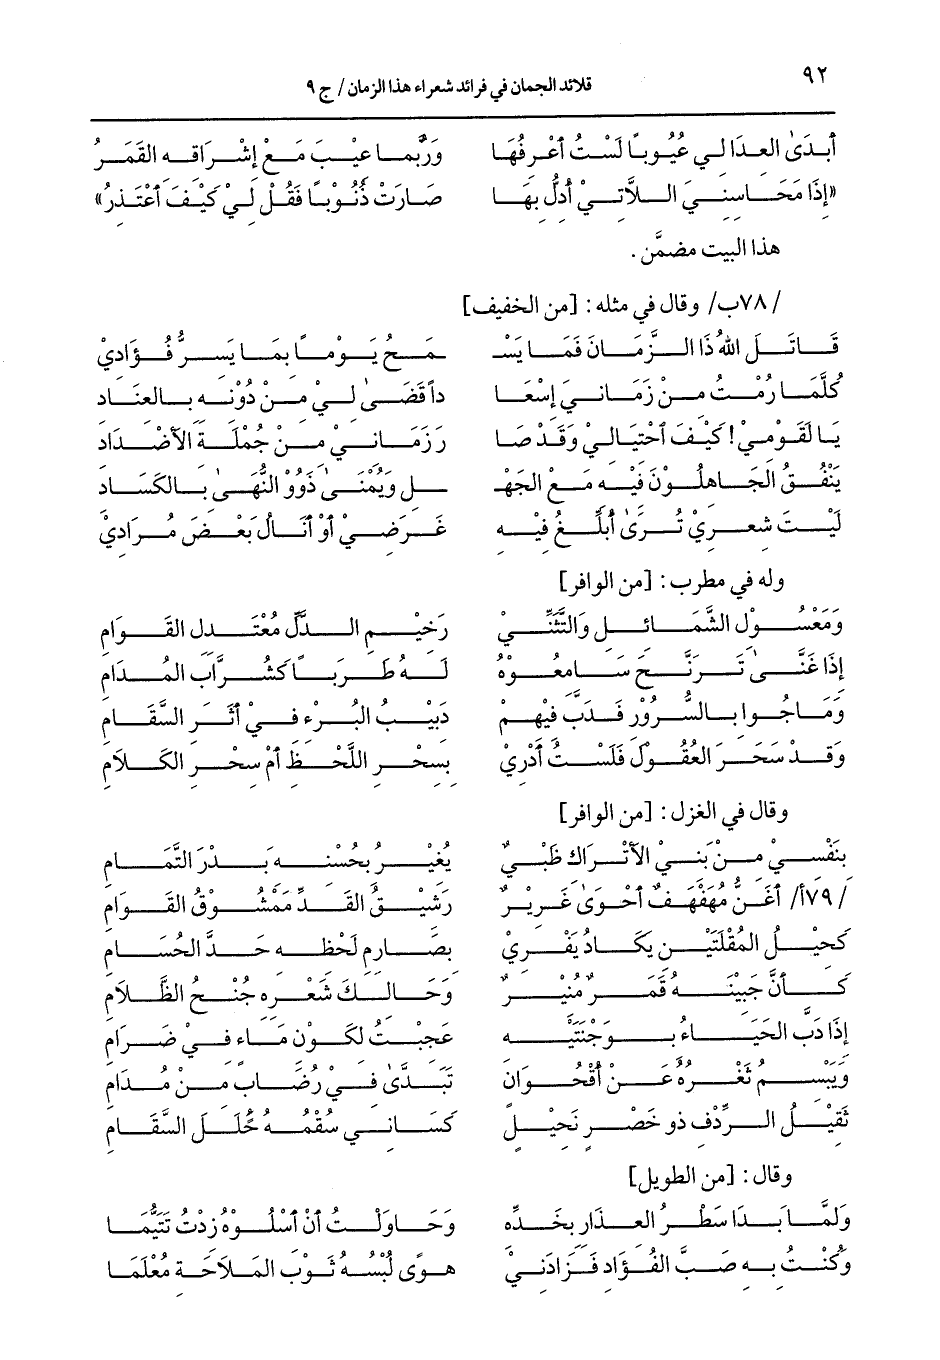 ٩٢
قلائد الجمان في فرائد شعراء هذا الزمان / ج ٩
أبدَىٰ العدَا لي عُيُوباً لَستُ أعْرفُهَا وَرُبَّمَا عيْبَ مَعْ إشْرَاقه القَمَرُ
«إذَا مَحَاسنيَ اللاَّتيْ أدلُّ بهَا صَارَتْ ذُنُوباً فَقُلْ ليْ كَيْفَ أعْتَذرُ»
هذا البيت مضمَّن .
/٧٨ب/ وقال في مثله : [من الخفيف]
قَاتَلَ اللهُ ذَا الزَّمَانَ فَمَا يَسْـ ـمَحُ يَوْماً بمَا يَسَرُّ فُؤَاديْ
كُلَّمَا رُمْتُ منْ زَمَانيَ إسْعَا داً قَضَىٰ ليْ منْ دُوْنه بالعنَاد
يَا لَقَوْميْ! كَيْفَ أحْتيَاليْ وَقَدْ صَا رَ زَمَانيْ منْ جُمْلَة الأضْدَاد
يَنْفُقُ الجَاهلُوْنَ فيْه مَعَ الجَهْـ ـل وَيُمْنَىٰ ذَوُو النُّهَىٰ بالكَسَاد
لَيْتَ شعريْ تُرَىٰ أبَلَّغُ فيْه غَرَضيْ أوْ أنَالُ بَعْضَ مُرَاديْ
وله في مطرب : [من الوافر]
وَمَعْسُوْل الشَّمَائل وَالتَّثَنِّيْ رَخيْم الدَّلِّ مُعْتَدل القَوَام
إذَا غَنَّىٰ تَرَنَّحَ سَامعُوْهُ لَهُ طَرَباً كَشُرَّاب المُدَام
وَمَاجُوا بالسُّرُوْر فَدَبَّ فيْهمْ دَبيْبُ البُرْء فيْ أثَر السَّقَام
وَقَدْ سَحَرَ العُقُوْلَ فَلَسْتُ أدْريْ بسحْر اللَّحْظ أمْ سحْر الكَلاَم
وقال في الغزل : [من الوافر]
بنَفْسيْ منْ بَنيْ الأتْرَاك ظَبْيٌ يُغيْرُ بحُسْنه بَدْرَ التَّمَام
/٧٩أ/ أغَنُّ مُهَفْهَفٌ أحْوَىٰ غَريْرٌ رَشيْقُ القَدِّ مَمْشُوْقُ القَوَام
كَحيْلُ المُقْلَتَيْن يَكَادُ يَفْريْ بصَارم لَحْظه حَدَّ الحُسَام
كَأنَّ جَبيْنَهُ قَمَرٌ مُنيْرٌ وَحَالكَ شَعْره جُنْحُ الظَّلاَم
إذَا دَبَّ الحَيَاءُ بوَجْنَتَيْه عَجبْتُ لكَوْن مَاء فيْ ضرَام
وَيَبْسُمُ ثَغْرُهُ عَنْ أُقْحُوَان تَبَدَّىٰ فيْ رُضَاب منْ مُدَام
ثَقيْلُ الرِّدْف ذو خَصْر نَحيْل كَسَاني سُقْمُهُ حُلَلَ السَّقَام
وقال : [من الطويل]
وَلَمَّا بَدَا سَطْرُ العذَار بخَدِّه وَحَاوَلْتُ أنْ أسْلُوْهُ زدْتُ تَتَيُّمَا
وَكُنْتُ به صَبَّ الفُؤَاد فَزَادَنيْ هَوًى لُبْسُهُ ثَوْبَ المَلاَحَة مُعْلَمَا